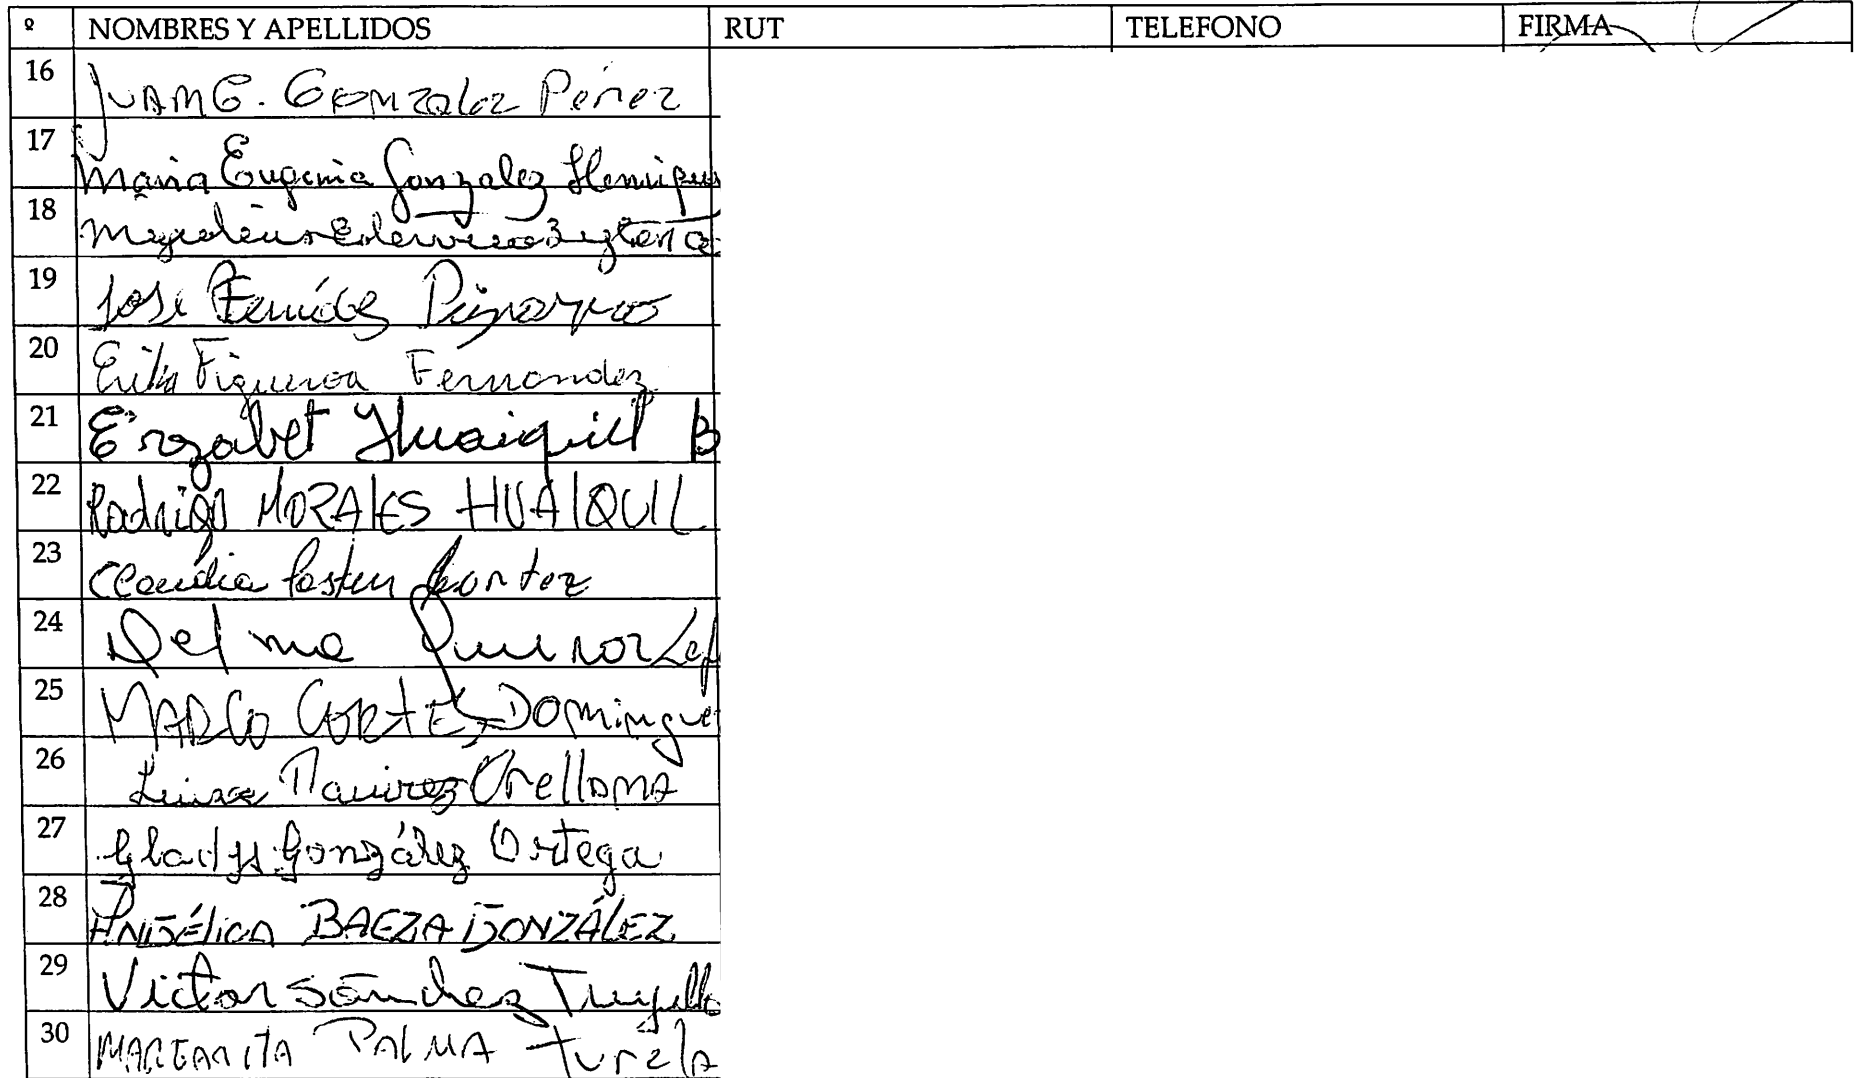 º NOMBRES Y APELLIDOS RUT TELEFONO FIRMA
16 JUAN G. GONZALEZ Pérez
17 Maria Eugenia Gonzalez Henriquez
18
19 Jose Pizarro
20 Erika Figueroa Fernandez
21 Erzabet Huaiquil B
22 Rodrigo MORALES HUAIQUIL
23 Claudia Pasten Cortez
24 Delma
25 MARCO CORTES Domingue
26 Luisa Ramirez Orellana
27 Gladys González Ortega
28 ANGÉLICA BAEZA GONZÁLEZ
29 Victor Sánchez Trujillo
30 MARGARITA PALMA